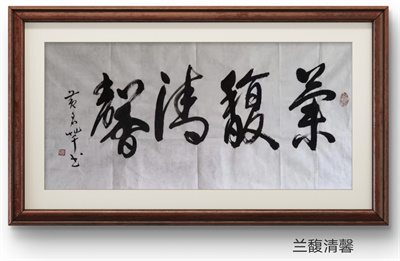 蘭馥清馨
兰馥清馨